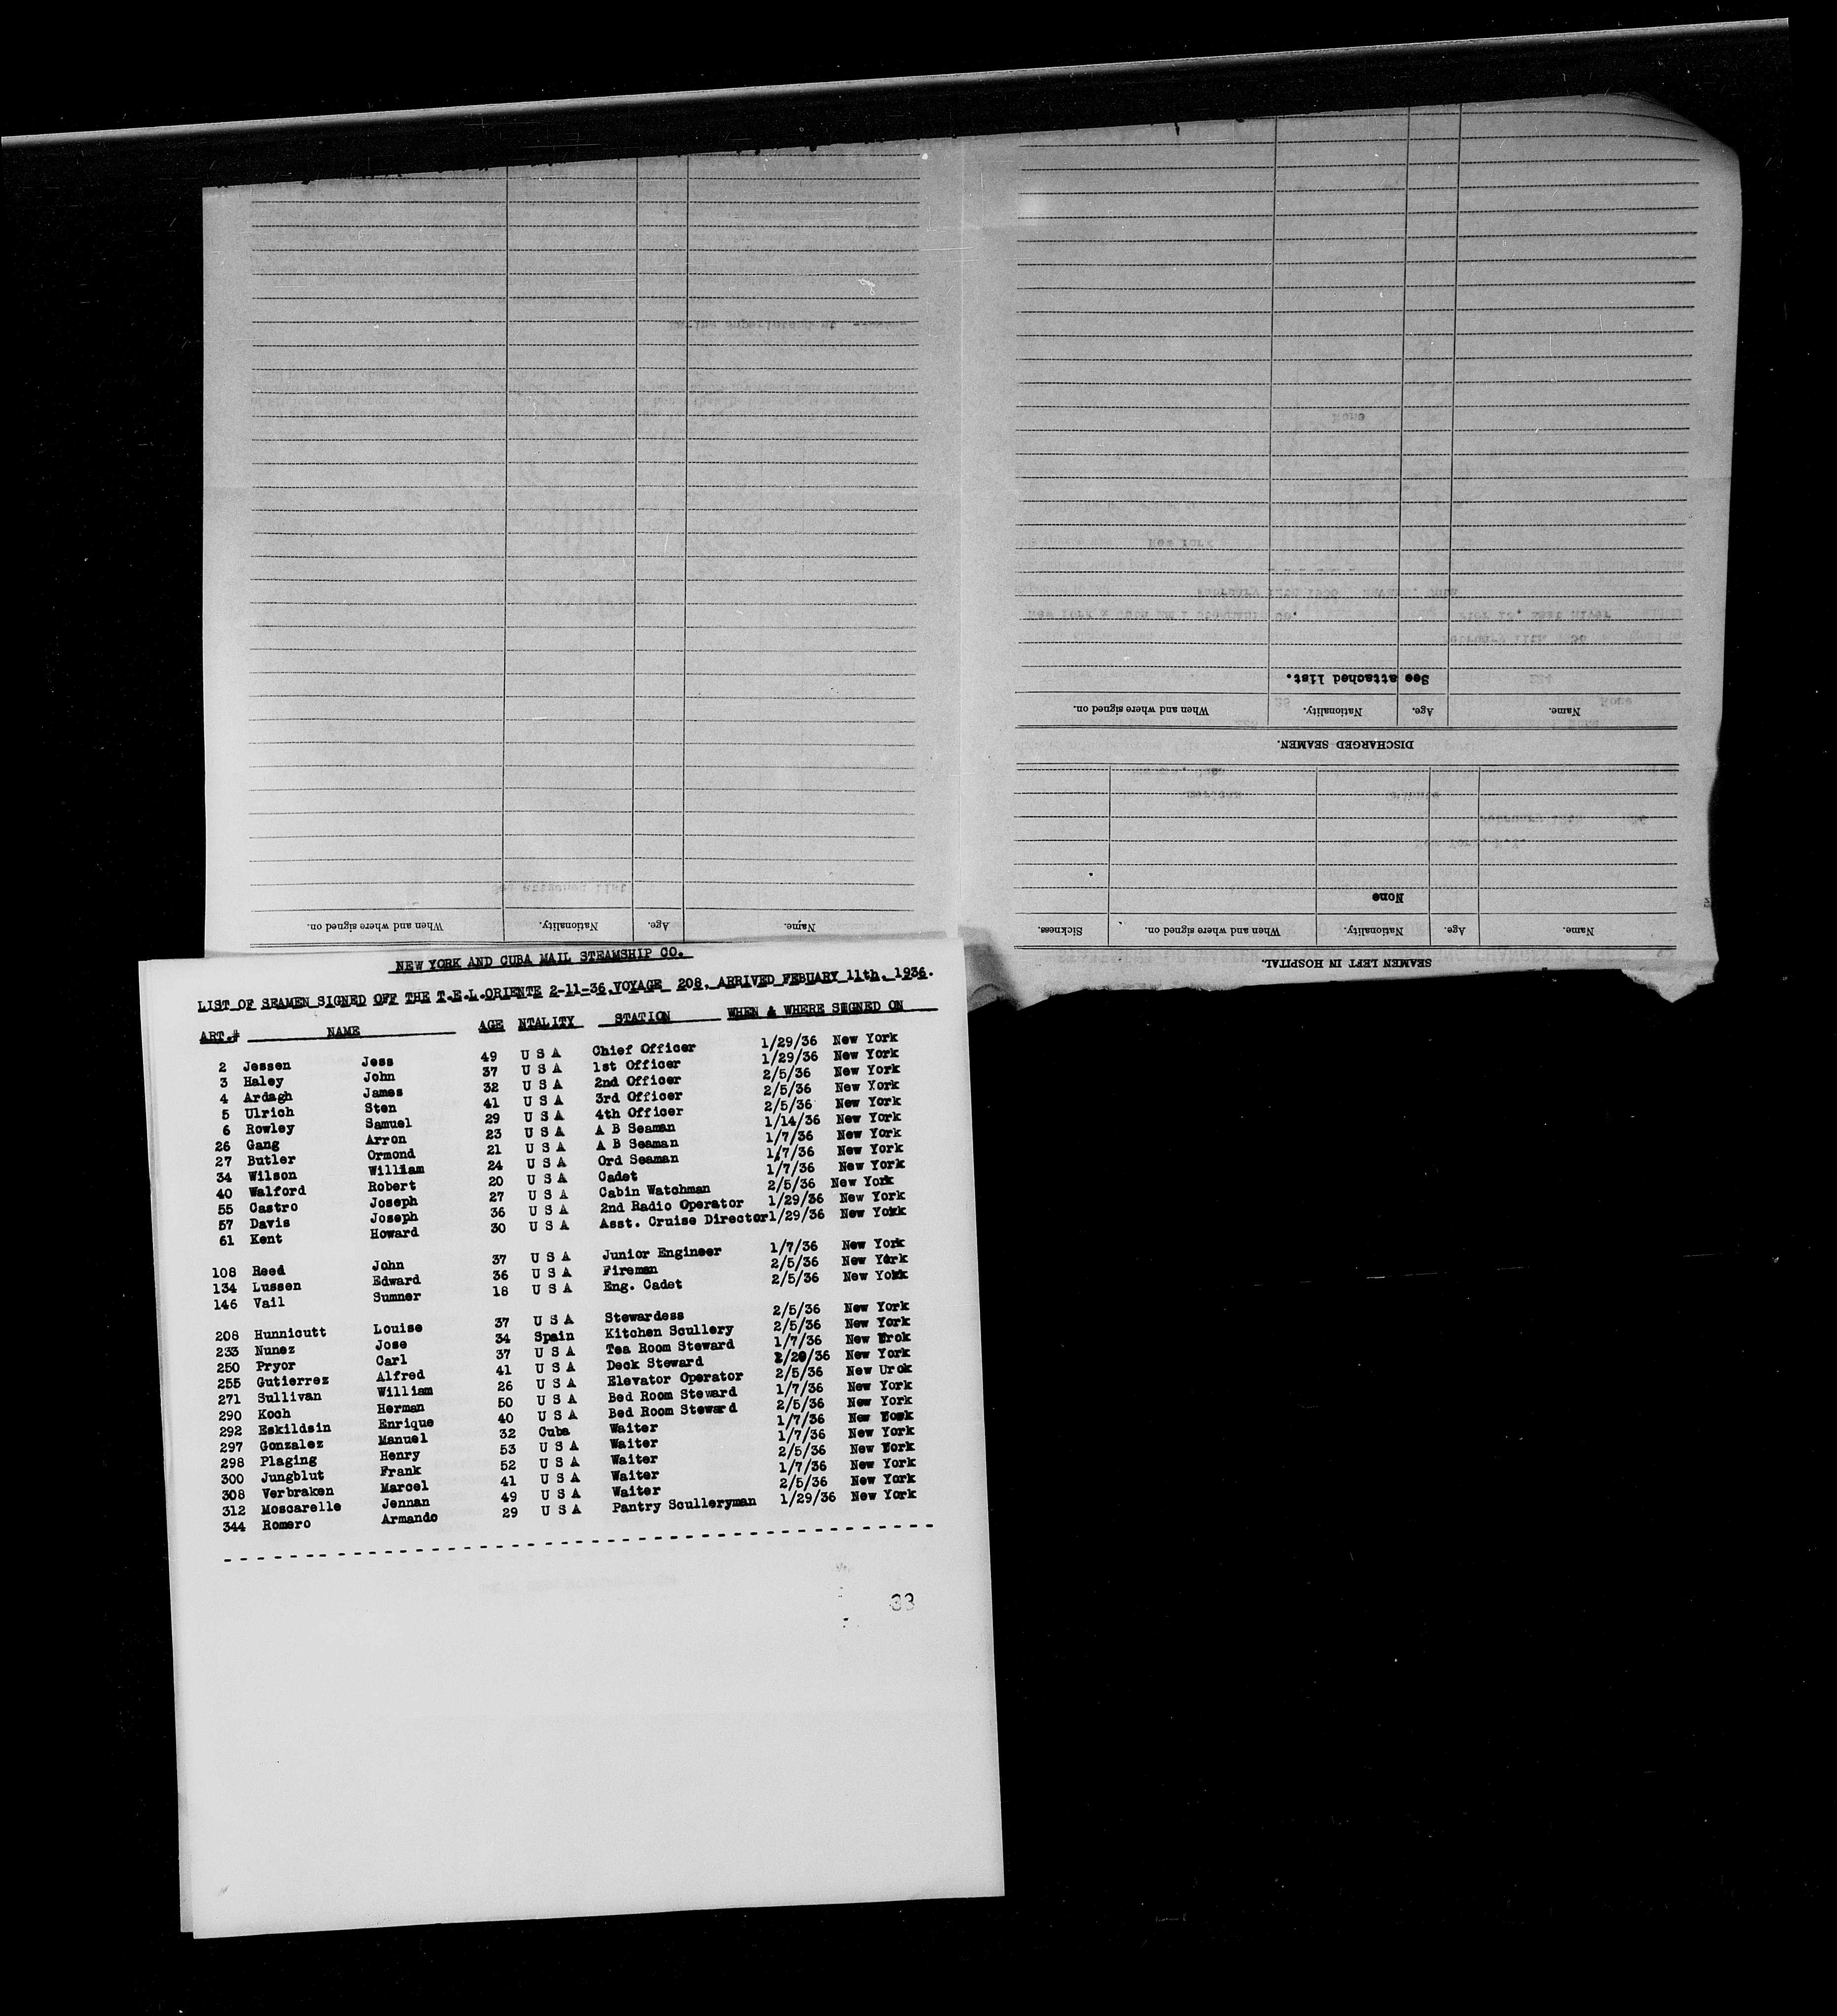 SEAMEN LEFT IN HOSPITAL.
Name. Age. Nationality. When and where signed on. Sickness.
None
DISCHARGED SEAMEN.
Name. Age. Nationality. When and where signed on.
See attached list.
Name. Age. Nationality. When and where signed on.
NEW YORK AND CUBA MAIL STEAMSHIP CO.
LIST OF SEAMEN SIGNED OFF THE T.E.L.ORIENTE 2-11-36.VOYAGE 208. ARRIVED FEBUARY 11th. 1936.
ART.# NAME AGE NTALITY STATION WHEN & WHERE SIGNED ON
2 Jessen Jess 49 U S A Chief Officer 1/29/36 New York
3 Haley John 37 U S A 1st Officer 1/29/36 New York
4 Ardagh James 32 U S A 2nd Officer 2/5/36 New York
5 Ulrich Sten 41 U S A 3rd Officer 2/5/36 New York
6 Rowley Samuel 29 U S A 4th Officer 2/5/36 New York
26 Gang Arron 23 U S A A B Seaman 1/14/36 New York
27 Butler Ormond 21 U S A A B Seaman 1/7/36 New York
34 Wilson William 24 U S A Ord Seaman 1/7/36 New York
40 Walford Robert 20 U S A Cadet 1/7/36 New York
55 Castro Joseph 27 U S A Cabin Watchman 2/5/36 New York
57 Davis Joseph 36 U S A 2nd Radio Operator 1/29/36 New York
61 Kent Howard 30 U S A Asst. Cruise Director 1/29/36 New York
108 Reed John 37 U S A Junior Engineer 1/7/36 New York
134 Lussen Edward 36 U S A Fireman 2/5/36 New York
146 Vail Sumner 18 U S A Eng. Cadet 2/5/36 New York
208 Hunnicutt Louise 37 U S A Stewardess 2/5/36 New York
233 Nunez Jose 34 Spain Kitchen Scullery 2/5/36 New York
250 Pryor Carl 37 U S A Tea Room Steward 1/7/36 New Urok
255 Gutierrez Alfred 41 U S A Deck Steward New York
271 Sullivan William 26 U S A Elevator Operator 2/5/36 New Urok
290 Koch Herman 50 U S A Bed Room Steward 1/7/36 New York
292 Eskildsin Enrique 40 U S A Bed Room Steward 2/5/36 New York
297 Gonzalez Manuel 32 Cuba Waiter 1/7/36 New York
298 Plaging Henry 53 U S A Waiter 1/7/36 New York
300 Jungblut Frank 52 U S A Waiter 2/5/36 New York
308 Verbraken Marcel 41 U S A Waiter 1/7/36 New York
312 Moscarelle Jennan 49 U S A Waiter 2/5/36 New York
344 Romero Armando 29 U S A Pantry Sculleryman 1/29/36 New York
33